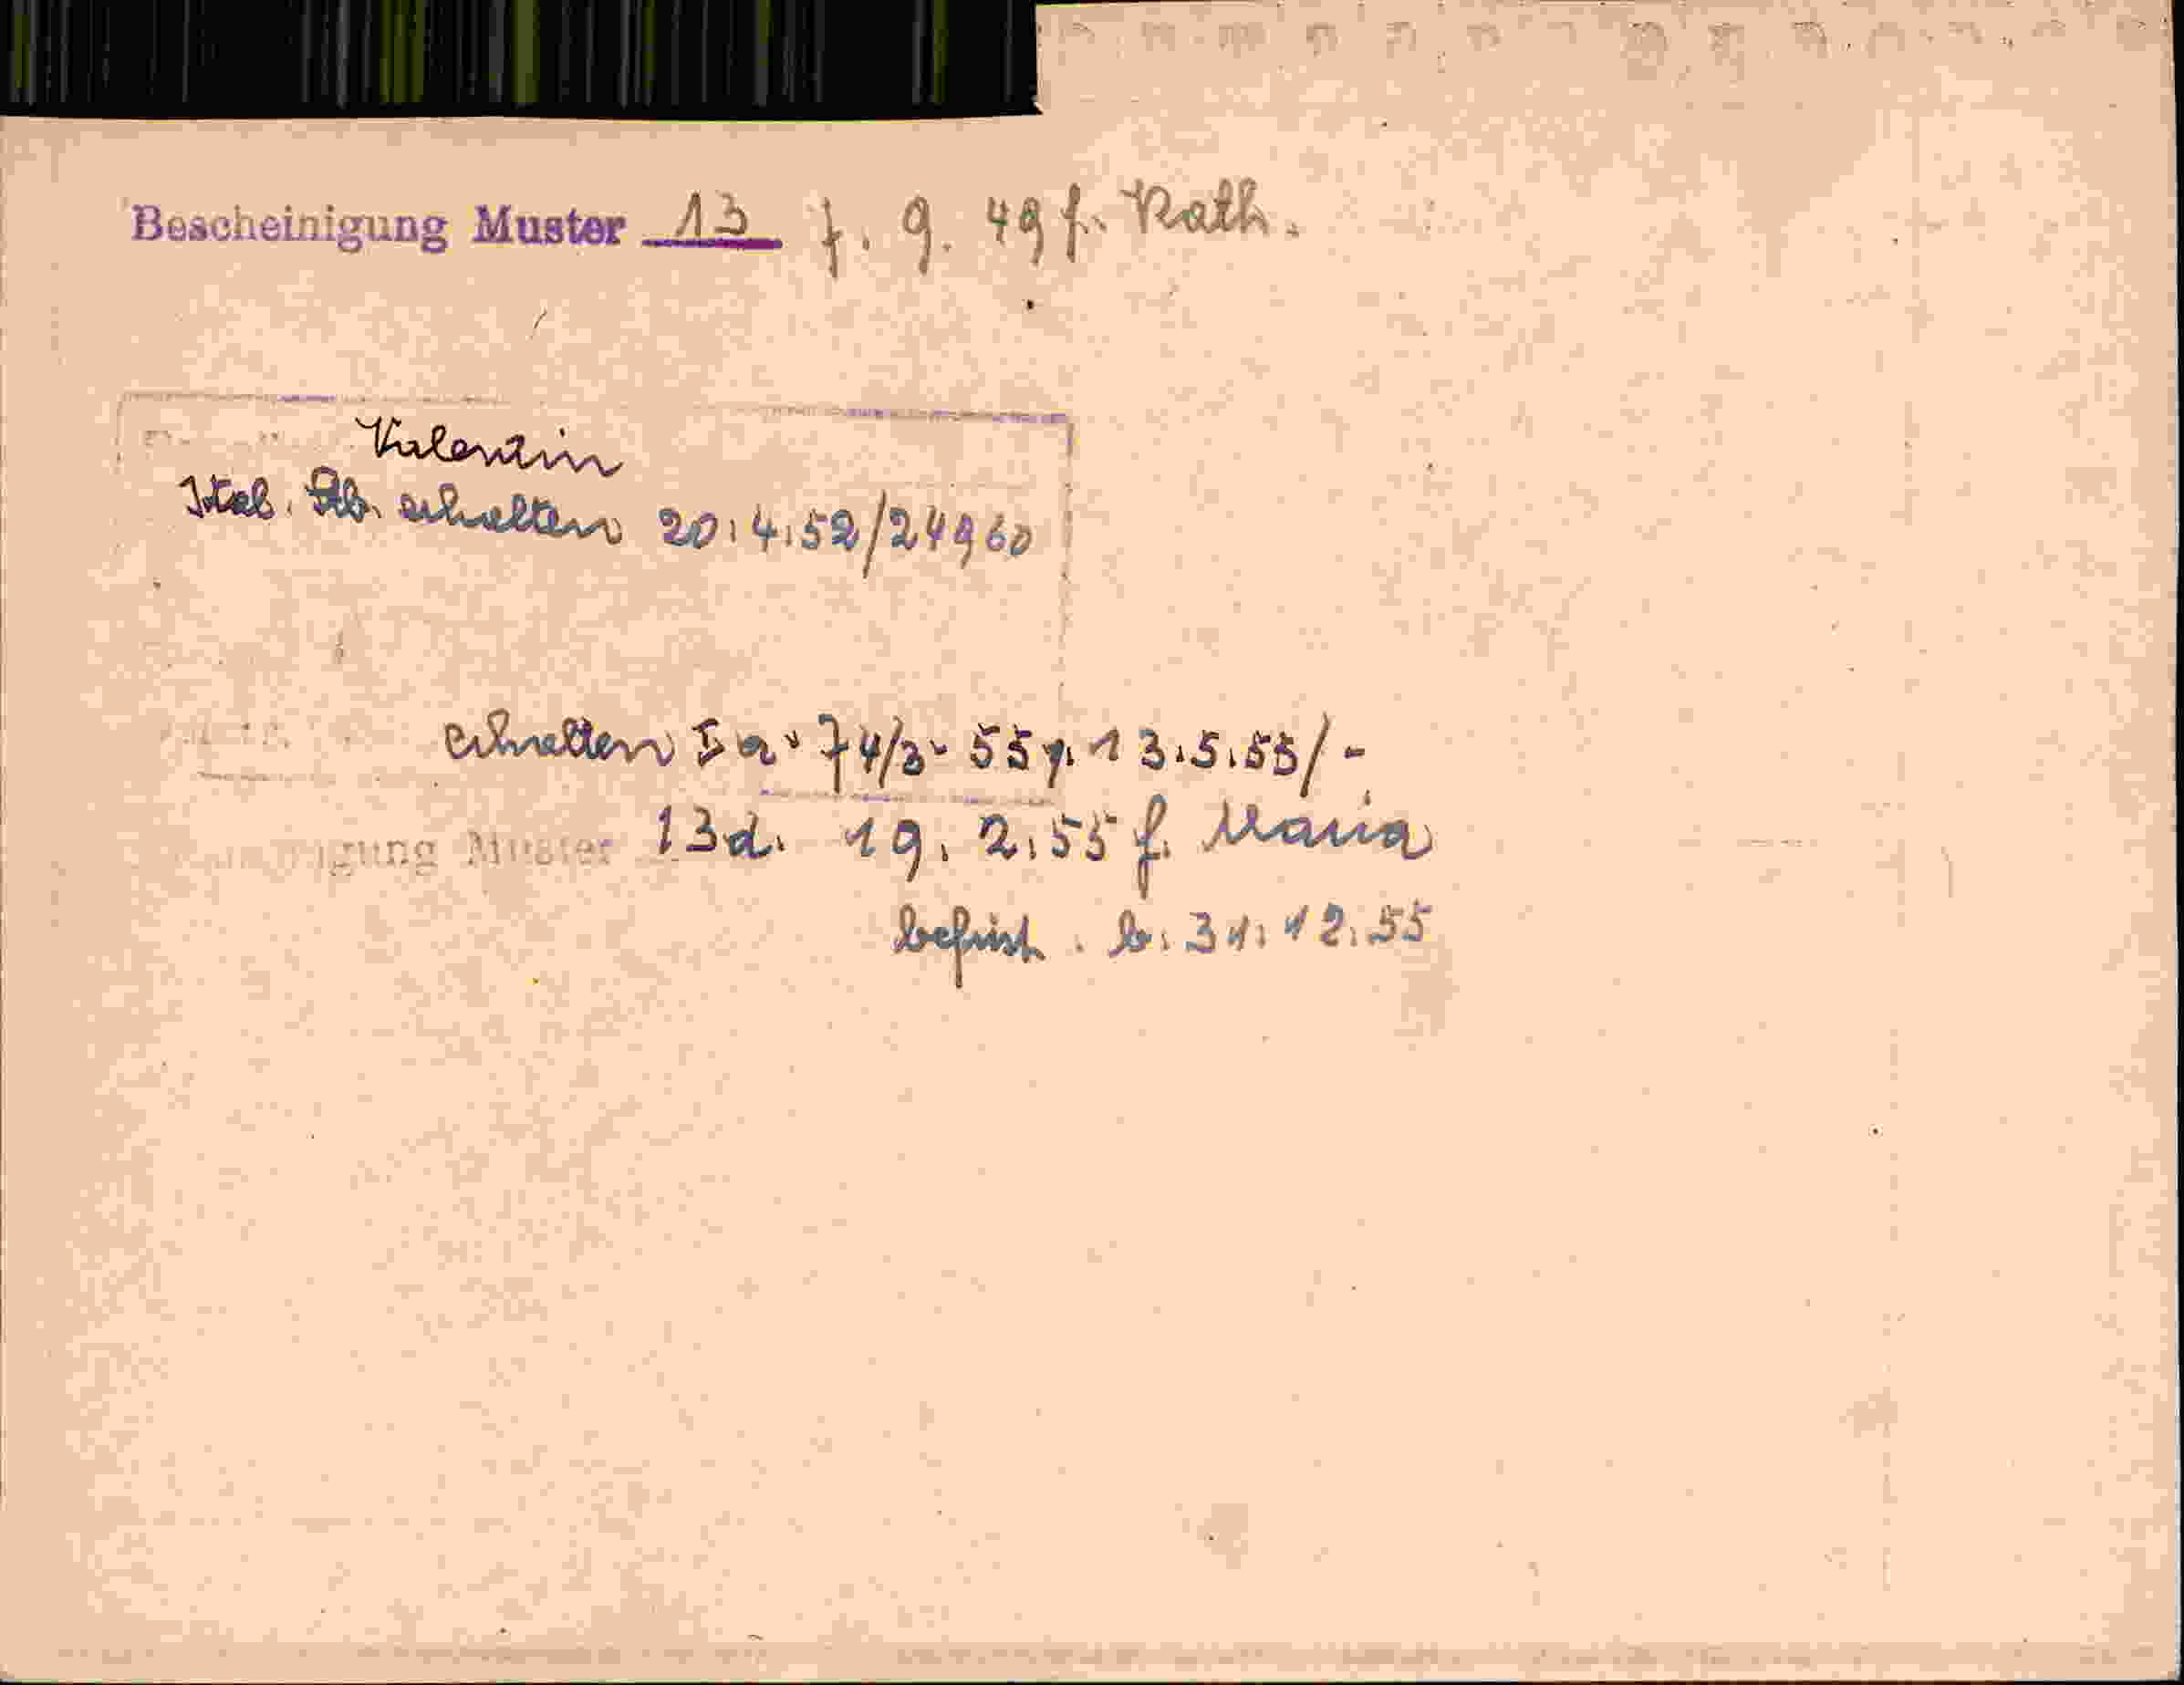 Bescheinigung Muster 13 7. 9. 49 f. Kath.
Valentin
erhalten 20.4.52/24960
erhalten 74/3. 55 13.5.55/-
igung Muster 13d. 19. 2.55 f. Maria
befrist. b. 31.12.55